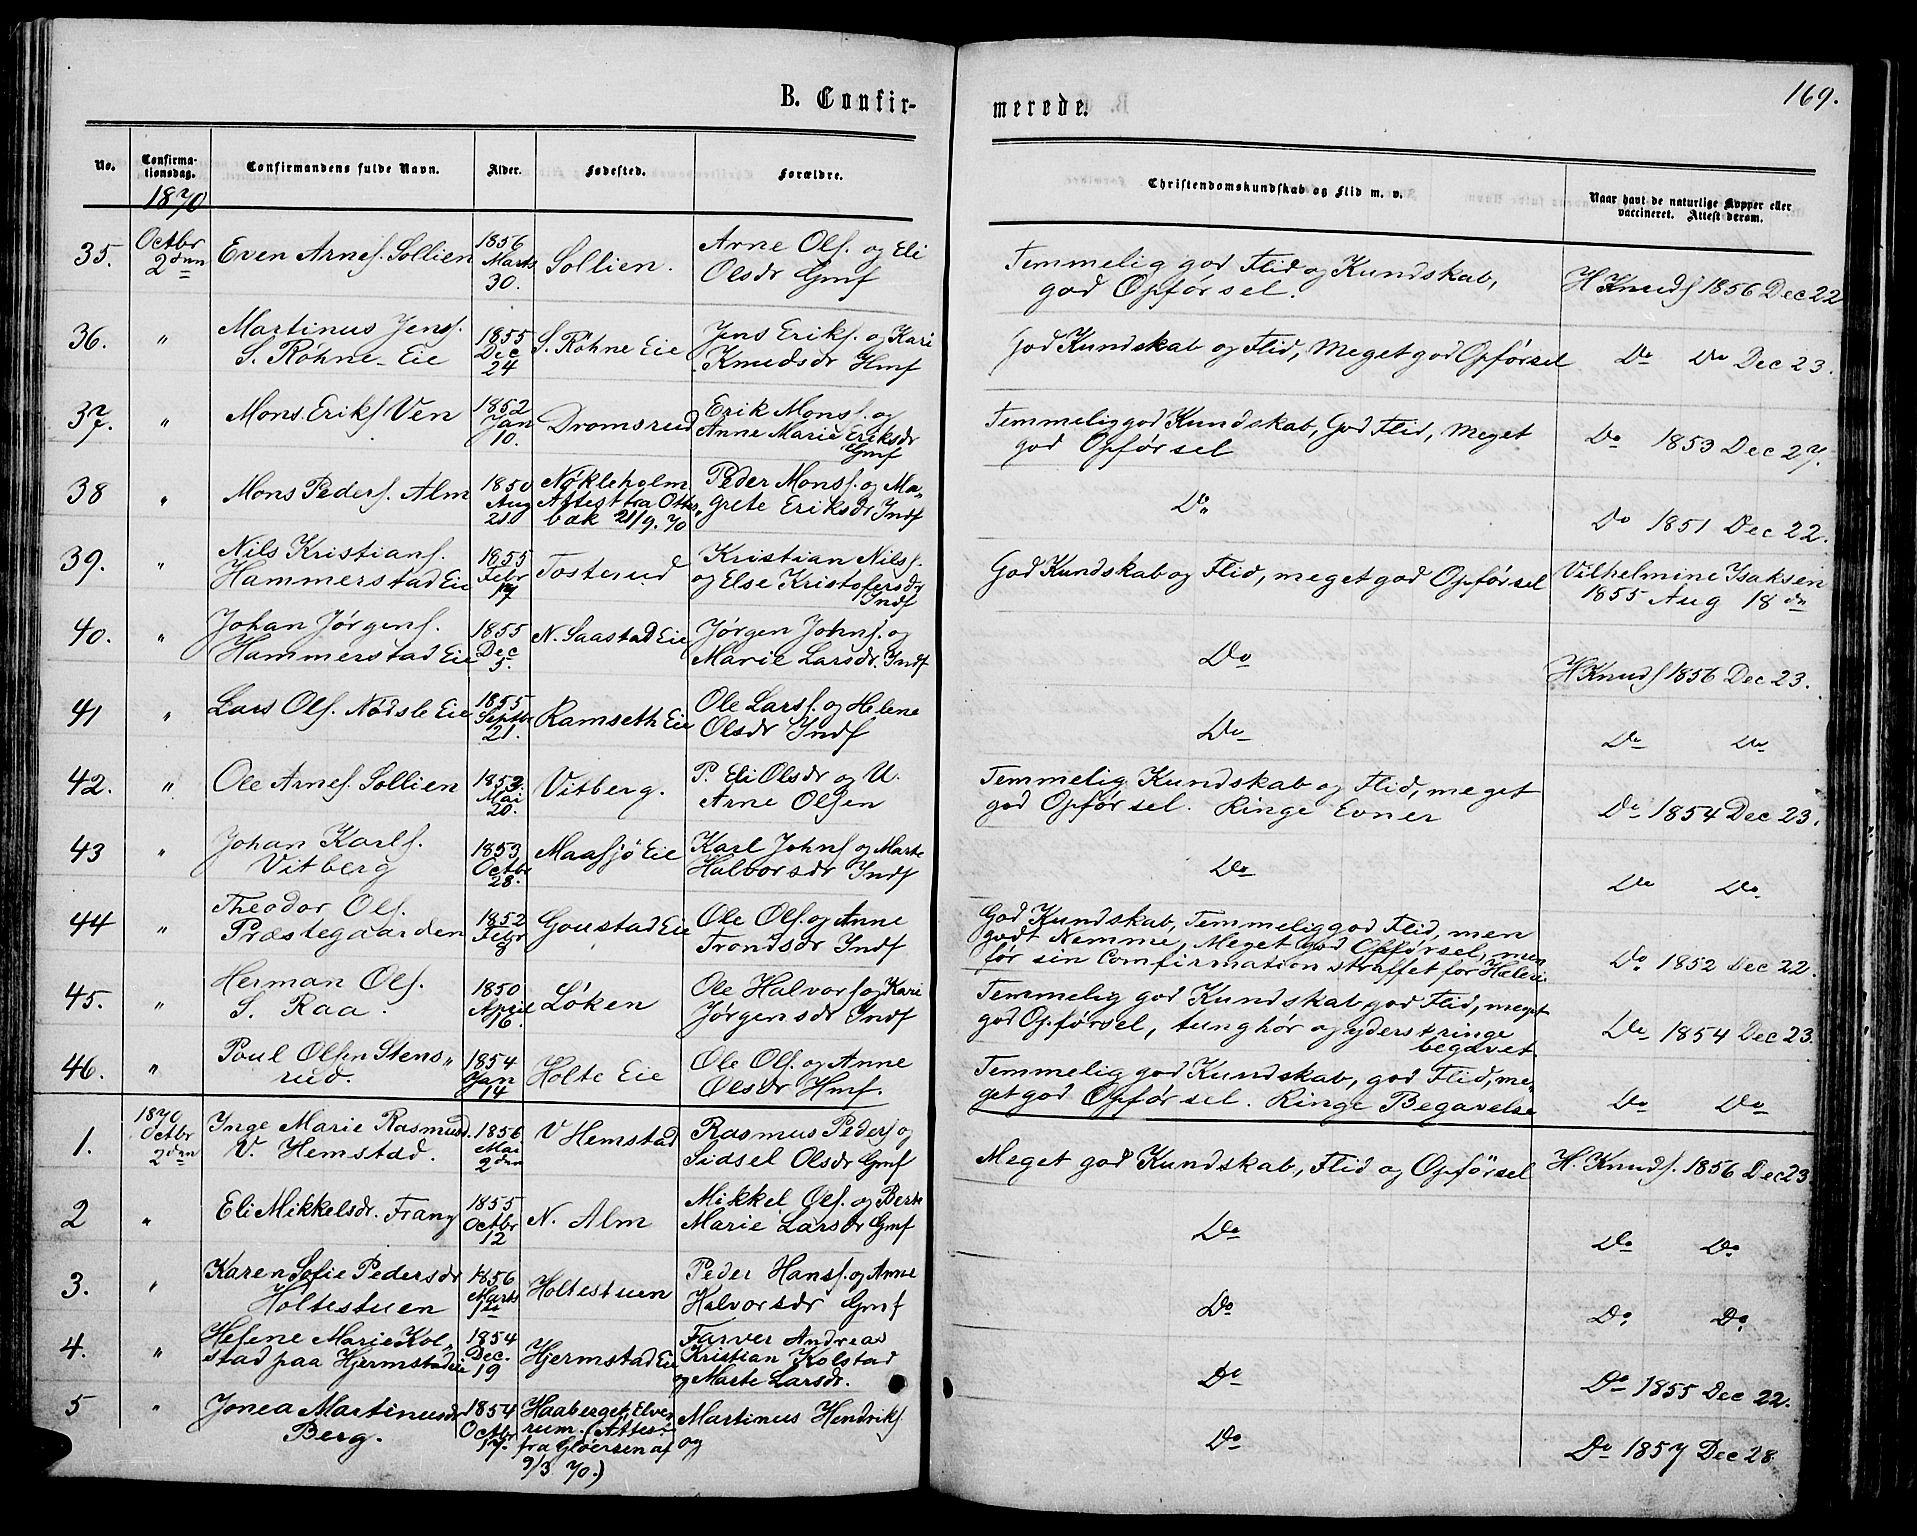 B. Confir-
merede.
169.
No.
Confirma-
tionsdag.
Confirmandens fulde Navn.
Alder.
Fødested.
Forældre.
Christendomskundskab og Flid m. v.
Naar havt de naturlige Kopper eller
vaccineret. Attest derom.
1870
35. Octbr 2den Even Arnes. Sollien 1856 Marts 30. Sollien. Arne Ols. og Eli Olsdr Gmf Temmelig god Flid og Kundskab, god Opførsel. H Knuds 1856 Dec 22
36. " Martinus Jens. S. Röhne-Eie 1855 Dec 24 S. Röhne Eie Jens Eriks. og Kari Knudsdr Hmf God Kundskab og Flid, Meget god Opførsel Do Do Dec 23.
37. " Mons Eriks Ven 1852 Jan 10. Dromsrud Erik Mons. og Anne Marie Eriksdr Gmf Temmelig god Kundskab, God Flid, Meget god Opførsel Do 1853 Dec 27.
38 " Mons Peders. Alm 1850 Aug 21 Nökleholm Attest fra Otter„ bæk 21/9. 70 Peder Mons. og Ma„ grete Eriksdr Indf Do Do 1851 Dec 22.
39. " Nils Kristians. Hammerstad Eie 1855 Febr 17 Tosterud Kristian Nils. og Else Kristofersdr Indf God Kundskab og Flid, meget god Opførsel Vilhelmine Isaksen 1855 Aug 18 dn
40. " Johan Jørgens. Hammerstad Eie 1855 Dec 5. N. Saastad Eie Jørgen Johns. og Marie Larsdr. Indf Do H Knuds 1856 Dec 23.
41 " Lars Ols. Nødsle Eie 1855 Septr 21. Ramseth Eie Ole Lars. og Helene Olsdr Indf Do Do Do
42. " Ole Arnes. Sollien 1853. Mai 20. Vitberg. P. Eli Olsdr og U. Arne Olsen Temmelig Kundskab og Flid, meget god Opførsel. Ringe Evner Do 1854 Dec 23.
43 " Johan Karls. Vitberg 1853 Octbr 28. Maasjø Eie Karl Johns og Marte Halvorsdr Indf Do Do Do
44 " Theodor Ols. Præstegaarden 1852 Febr 8 Goustad Eie Ole Ols. og Anne Trondsdr Indf God Kundskab, Temmelig god Flid, men godt Nemme, Meget god Opførsel, men før sin Comfirmation straffet for Do 1852 Dec 22.
45. " Herman Ols. S. Raa. 1850 April 16. Löken Ole Halvors og Kari Jørgensdr Indf Temmelig god Kundskab god Flid, meget god Opførsel, tunghør og yderst ringe begavet Do 1854 Dec 23.
46. " Poul Olsen Stens„ rud. 1854 Jan 14 Holte Eie Ole Ols. og Anne Olsdr Hmf. Temmelig god Kundskab, god Flid, me„ get god Opførsel. Ringe Begavelse Do Do
1. 1870 Octbr 2den Inge Marie Rasmusd. V. Hemstad. 1856 Mai 2den V Hemstad Rasmus Peders og Sidsel Olsdr Gmf Meget god Kundskab, Flid og Opførsel H. Knuds. 1856 Dec 23
2 " Eli Mikkelsdr. Frang 1855 Octbr 12 N. Alm Mikkel Ols. og Berte Marie Larsdr Gmf Do Do Do
3. " Karen Sofie Pedersdr Holtestuen 1856 Marts 1ste Holtestuen Peder Hans. og Anne Halvorsdr Gmf Do Do Do
4. " Helene Marie Kol„ stad paa Hjermstadeie 1854 Dec. 19 Hjermstad Eie Farver Andreas Kristian Kolstad og Marte Larsdr. Do Do 1855 Dec 22.
5 " Jonea Martinusdr Berg. 1854 Octbr 17. Haaberget, Elve„ rum. (Attest fra Gløersen af 9/3 70.) Martinus Hendriks og Do Do 1857 Dec 28